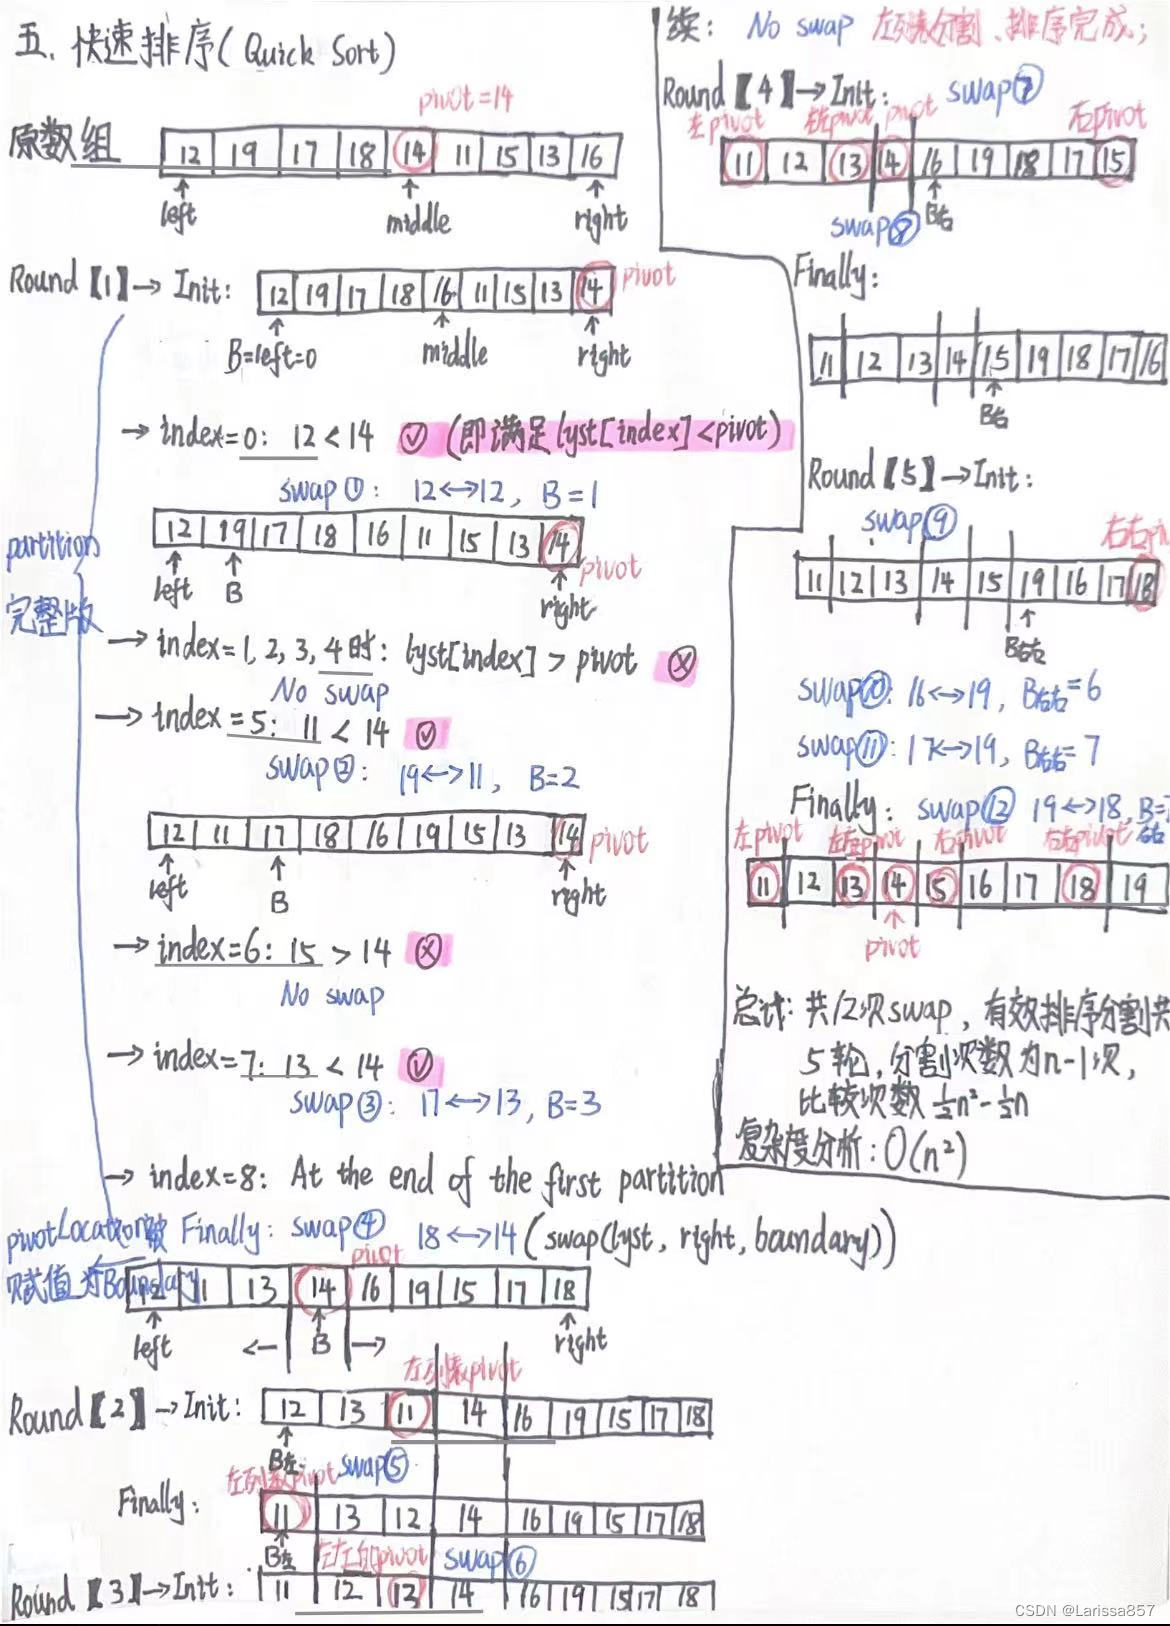 五. 快速排序(Quick Sort)
pivot=14
原数组
12 19 17 18 14 11 15 13 16
left middle right
Round【1】→Init:
12 19 17 18 16 11 15 13 14 pivot
B=left=0 middle right
→ index=0: 12<14 ✓ (即满足lyst[index]<pivot)
swap①: 12↔12, B=1
12 19 17 18 16 11 15 13 14 pivot
left B right
partition
完整版
→ index=1,2,3,4时: lyst[index]>pivot ⊗
No swap
→ index=5: 11<14 ✓
swap②: 19↔11, B=2
12 11 17 18 16 19 15 13 14 pivot
left B right
→ index=6: 15>14 ⊗
No swap
→ index=7: 13<14 ✓
swap③: 17↔13, B=3
→ index=8: At the end of the first partition
pivotLocation被
赋值为Boundary
Finally: swap④ 18↔14 (swap(lyst, right, boundary))
pivot
12 11 13 14 16 19 15 17 18
left ← B → right
左列表pivot
Round【2】→Init: 12 13 11 14 16 19 15 17 18
B左 swap⑤
左列表pivot
Finally: 11 13 12 14 16 19 15 17 18
B左 左右的pivot swap⑥
Round【3】→Init: 11 12 13 14 16 19 15 17 18
续: No swap 左列表分割、排序完成;
Round【4】→Init: swap⑦
左pivot 左右pivot pivot 右pivot
11 12 13 14 16 19 18 17 15
swap⑧ B右
Finally:
11 12 13 14 15 19 18 17 16
B右
Round【5】→Init:
swap⑨
右右pi
11 12 13 14 15 19 16 17 18
B右右
swap⑩: 16↔19, B右右=6
swap⑪: 17↔19, B右右=7
Finally: swap⑫ 19↔18, B右右=7
左pivot 左右pivot 右pivot 右右pivot
11 12 13 14 15 16 17 18 19
pivot
总计: 共12次swap, 有效排序分割共
5轮, 分割次数为n-1次,
比较次数 ½n²-½n
复杂度分析: O(n²)
CSDN @Larissa857